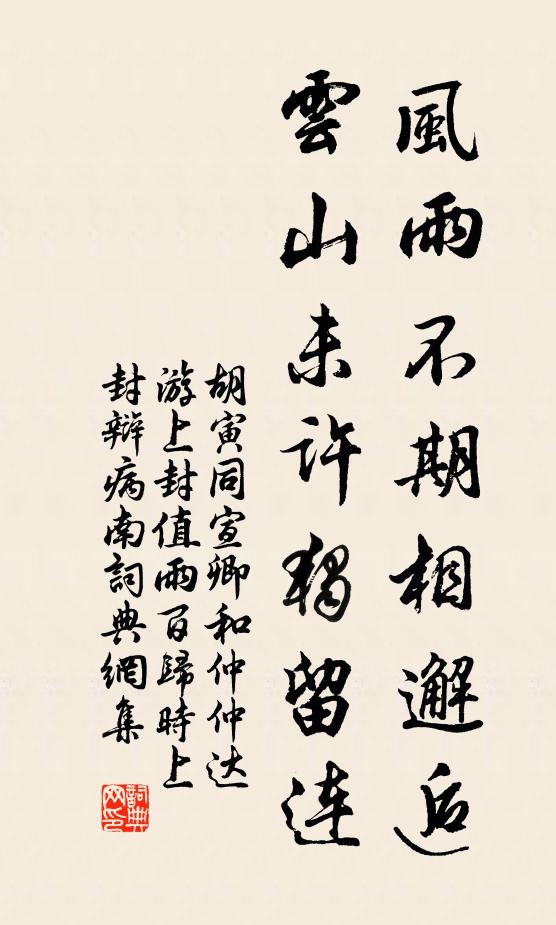 風雨不期相邂逅
雲山未許獨留連
胡寅同宣卿和仲仲达
游上封值雨而歸時上
封辯病南詞典網集
詞典
网印